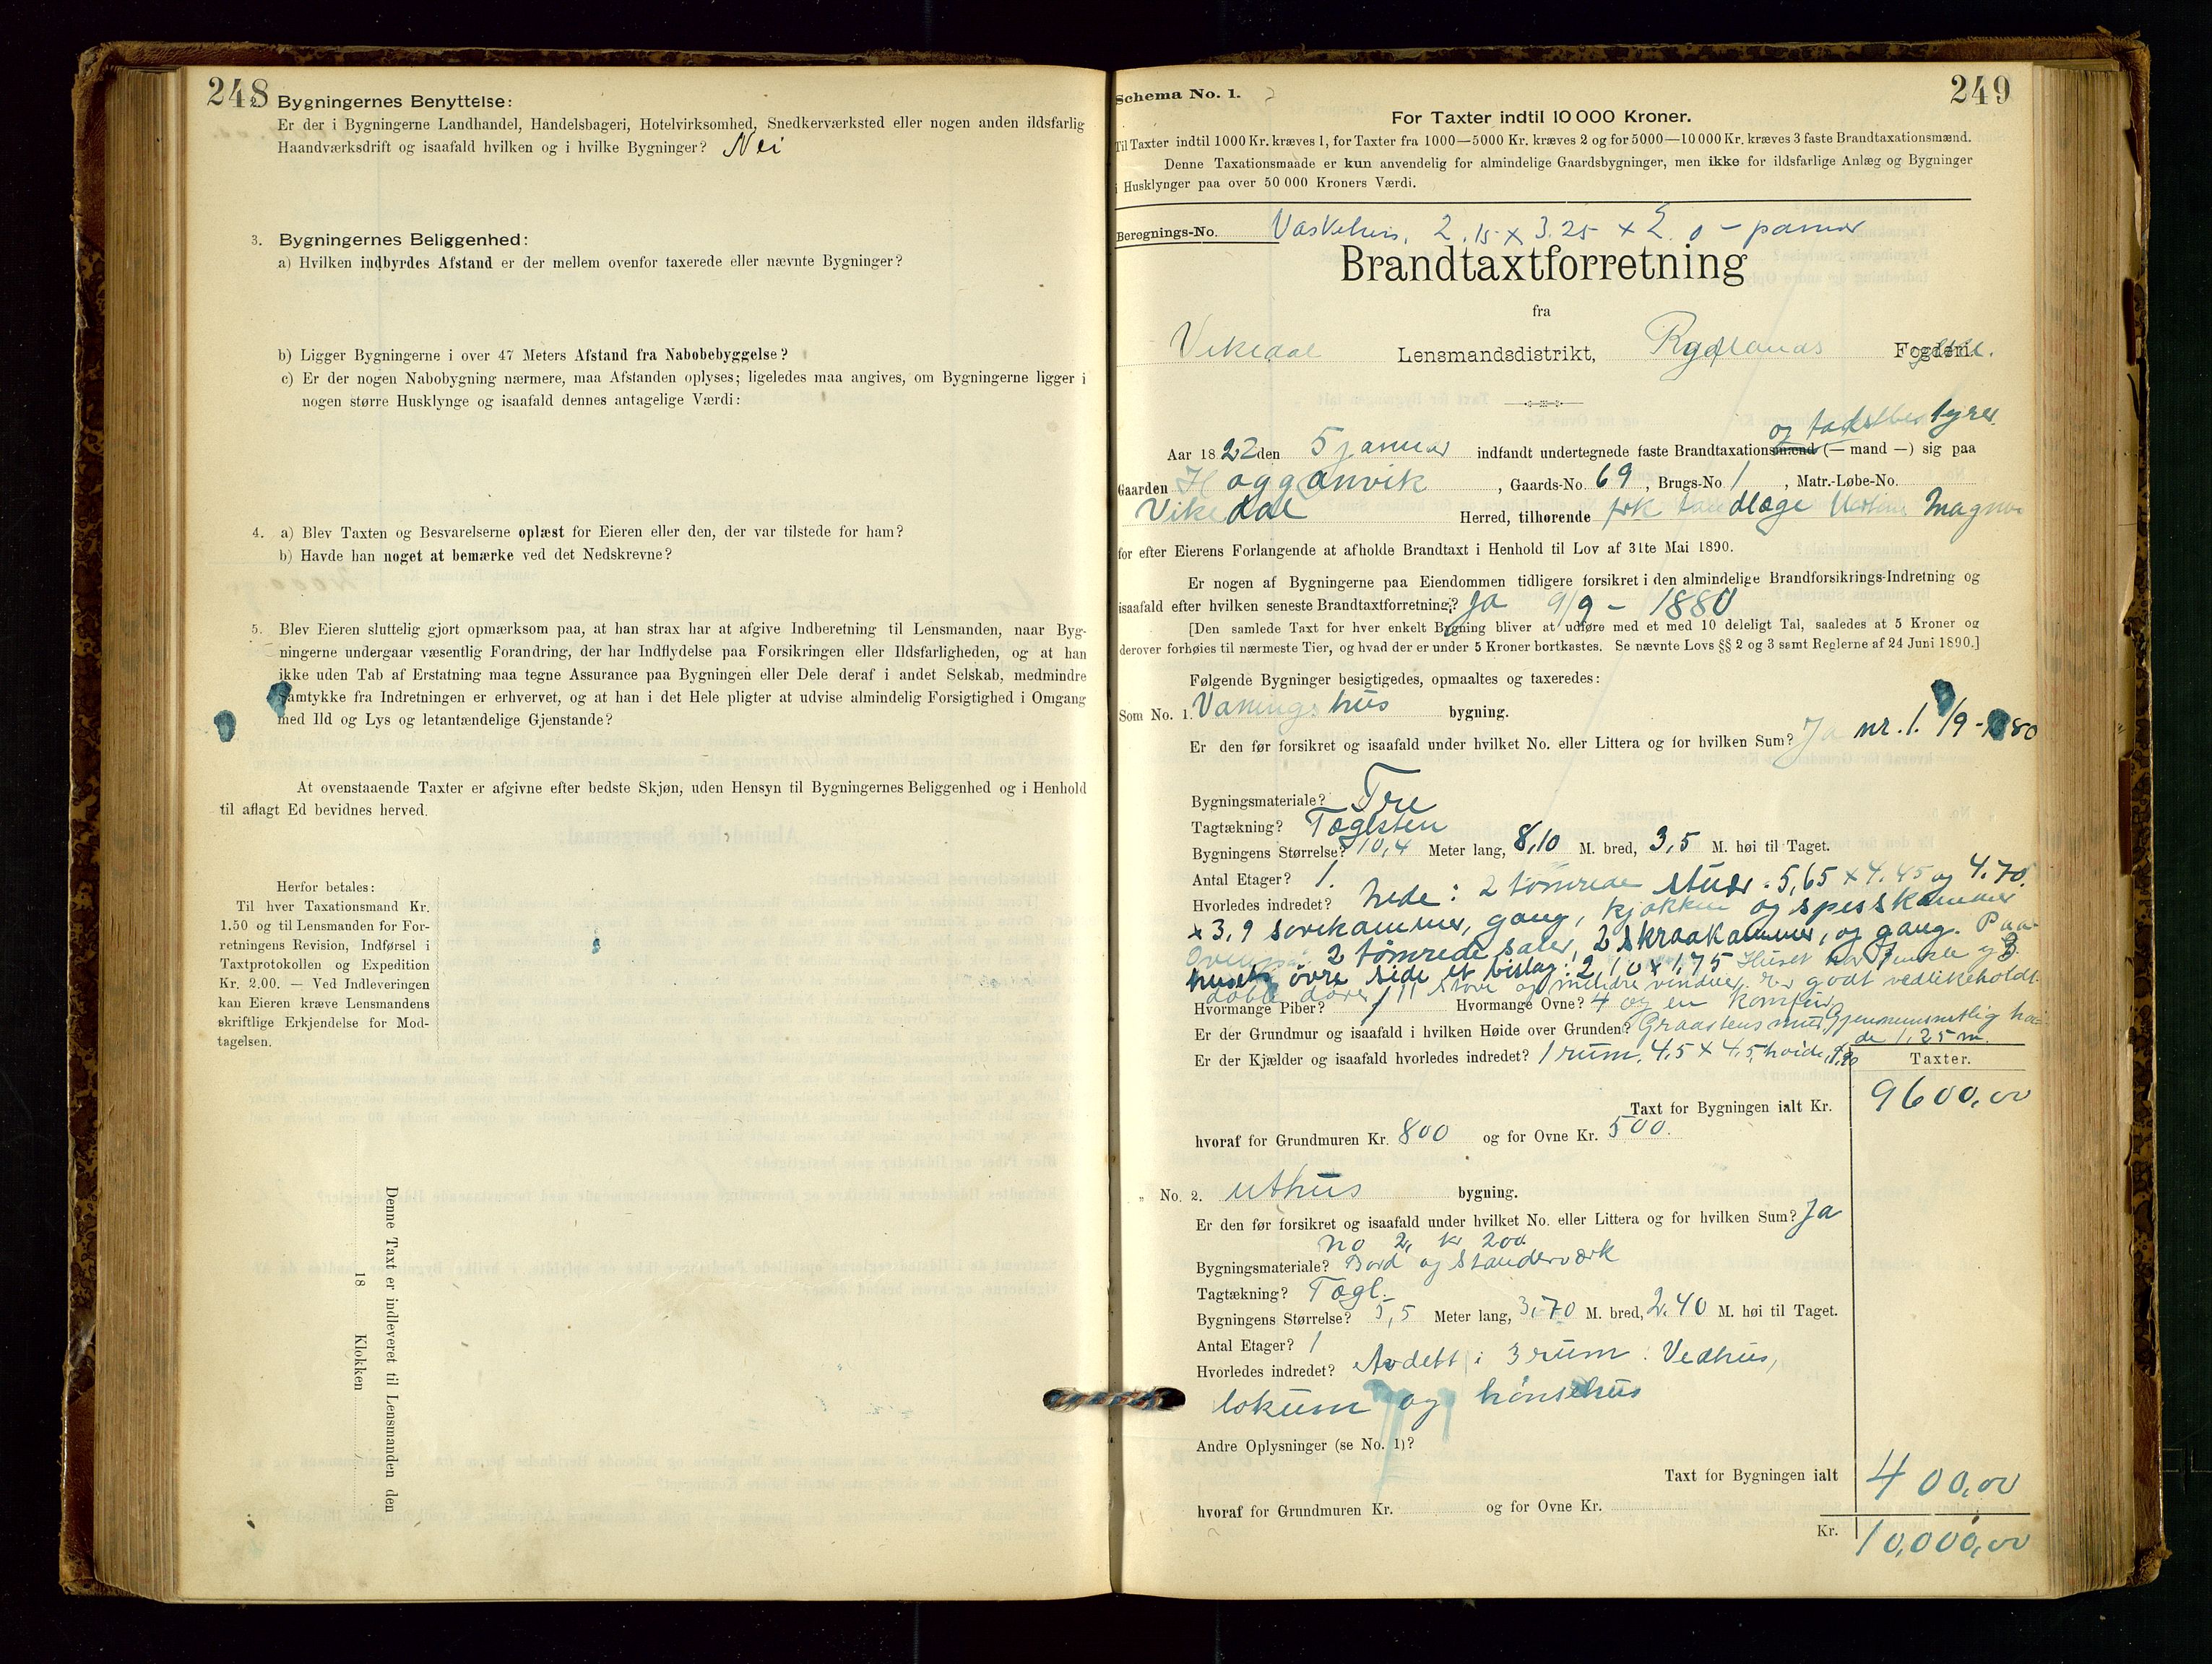 248
2. Bygningernes Benyttelse:
Er der i Bygningerne Landhandel, Handelsbageri, Hotelvirksomhed, Snedkerværksted eller nogen anden ildsfarlig
Haandværksdrift og isaafald hvilken og i hvilke Bygninger? Nei
3. Bygningernes Beliggenhed:
a) Hvilken indbyrdes Afstand er der mellem ovenfor taxerede eller nævnte Bygninger?
b) Ligger Bygningerne i over 47 Meters Afstand fra Nabobebyggelse?
c) Er der nogen Nabobygning nærmere, maa Afstanden oplyses; ligeledes maa angives, om Bygningerne ligger i
nogen større Husklynge og isaafald dennes antagelige Værdi:
4. a) Blev Taxten og Besvarelserne oplæst for Eieren eller den, der var tilstede for ham?
b) Havde han noget at bemærke ved det Nedskrevne?
5. Blev Eieren sluttelig gjort opmærksom paa, at han strax har at afgive Indberetning til Lensmanden, naar Byg-
ningerne undergaar væsentlig Forandring, der har Indflydelse paa Forsikringen eller Ildsfarligheden, og at han
ikke uden Tab af Erstatning maa tegne Assurance paa Bygningen eller Dele deraf i andet Selskab, medmindre
Samtykke fra Indretningen er erhvervet, og at han i det Hele pligter at udvise almindelig Forsigtighed i Omgang
med Ild og Lys og letantændelige Gjenstande?
At ovenstaaende Taxter er afgivne efter bedste Skjøn, uden Hensyn til Bygningernes Beliggenhed og i Henhold
til aflagt Ed bevidnes herved.
Herfor betales:
Til hver Taxationsmand Kr.
1.50 og til Lensmanden for For-
retningens Revision, Indførsel i
Taxtprotokollen og Expedition
Kr. 2.00. — Ved Indleveringen
kan Eieren kræve Lensmandens
skriftlige Erkjendelse for Mod-
tagelsen.
Denne Taxt er indleveret til Lensmanden den
/ 18 Klokken
249
Schema No. 1.
For Taxter indtil 10 000 Kroner.
Til Taxter indtil 1000 Kr. kræves 1, for Taxter fra 1000—5000 Kr. kræves 2 og for 5000—10 000 Kr. kræves 3 faste Brandtaxationsmænd.
Denne Taxationsmaade er kun anvendelig for almindelige Gaardsbygninger, men ikke for ildsfarlige Anlæg og Bygninger
i Husklynger paa over 50 000 Kroners Værdi.
Beregnings-No. Vaskehus, 2.15 x 3.25 x 2.0 -
Brandtaxtforretning
fra
Vikedal Lensmandsdistrikt, Ryfylke Fogderi.
og takstbestyrer
Aar 1822 den 5 januar indfandt undertegnede faste Brandtaxationsmænd (— mand —) sig paa
Gaarden Hogganvik, Gaards-No. 69, Brugs-No. 1, Matr.-Løbe-No.
Vikedal Herred, tilhørende frk tandlæge Magnus
for efter Eierens Forlangende at afholde Brandtaxt i Henhold til Lov af 31te Mai 1890.
Er nogen af Bygningerne paa Eiendommen tidligere forsikret i den almindelige Brandforsikrings-Indretning og
isaafald efter hvilken seneste Brandtaxtforretning? Ja 9/9 - 1880
[Den samlede Taxt for hver enkelt Bygning bliver at udføre med et med 10 deleligt Tal, saaledes at 5 Kroner og
derover forhøies til nærmeste Tier, og hvad der er under 5 Kroner bortkastes. Se nævnte Lovs §§ 2 og 3 samt Reglerne af 24 Juni 1890.]
Følgende Bygninger besigtigedes, opmaaltes og taxeredes:
Som No. 1. Vaningshus bygning.
Er den før forsikret og isaafald under hvilket No. eller Littera og for hvilken Sum? Ja nr. 1. 9/9-1880
Bygningsmateriale? Tre
Tagtækning? Teglsten
Bygningens Størrelse? 10,4 Meter lang, 8,10 M. bred, 3,5 M. høi til Taget.
Antal Etager? 1
Hvorledes indredet? Nede: 2 tømrede stuer 5,65 x 4.45 og 4.70
x 3,9 sovekammer, gang, kjøkken og spisskammer
Ovenpaa 2 tømrede saler, 2 skraakammer, og gang. Paa
husets øvre side et bislag: 2,10 x 1,75 Huset har 7 enkle og 3
doble dører, 11 store og mindre vinduer. Er godt vedlikeholdt.
Hvormange Piber? 1 Hvormange Ovne? 4 og en komfur
Er der Grundmur og isaafald i hvilken Høide over Grunden? Graastensmur, gjennemsnitlig høi-
de 1,25 m.
Er der Kjælder og isaafald hvorledes indredet? 1 rum, 4,5 x 4,5, høide, 1,90
Taxter.
Taxt for Bygningen ialt Kr. 9600,00
hvoraf for Grundmuren Kr. 800 og for Ovne Kr. 500.
" No. 2. Uthus bygning.
Er den før forsikret og isaafald under hvilket No. eller Littera og for hvilken Sum? Ja
no 2, kr 200
Bygningsmateriale? Bord og Standerværk
Tagtækning? Tegl.
Bygningens Størrelse? 5,5 Meter lang, 3,70 M. bred, 2.40 M. høi til Taget.
Antal Etager? 1
Hvorledes indredet? Avdelt i 3 rum: Vedhus,
lokum og hønsehus
Andre Oplysninger (se No. 1)?
Taxt for Bygningen ialt 400,00
hvoraf for Grundmuren Kr. og for Ovne Kr.
Kr. 10,000,00